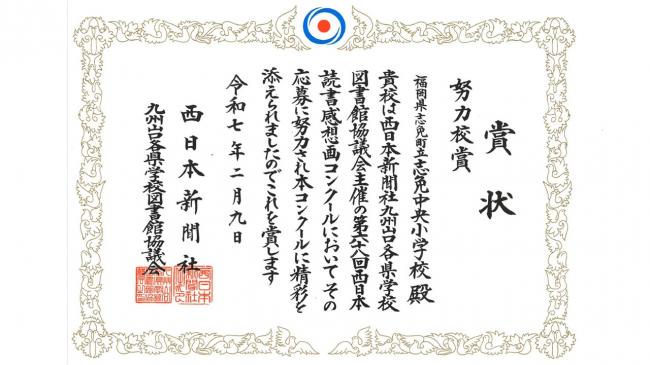 賞状
努力校賞
福岡県志免町立志免中央小学校 殿
貴校は西日本新聞社九州山口各県学校
図書館協議会主催の第六十八回西日本
読書感想画コンクールにおいてその
応募に努力され本コンクールに精彩を
添えられましたのでこれを賞します
令和七年二月九日
西日本新聞社
九州山口各県学校図書館協議会